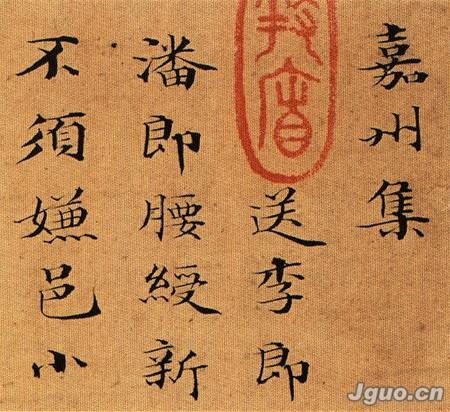 嘉州集
送李郎
潘郎腰綬新
不須嫌邑小
Jguo.cn